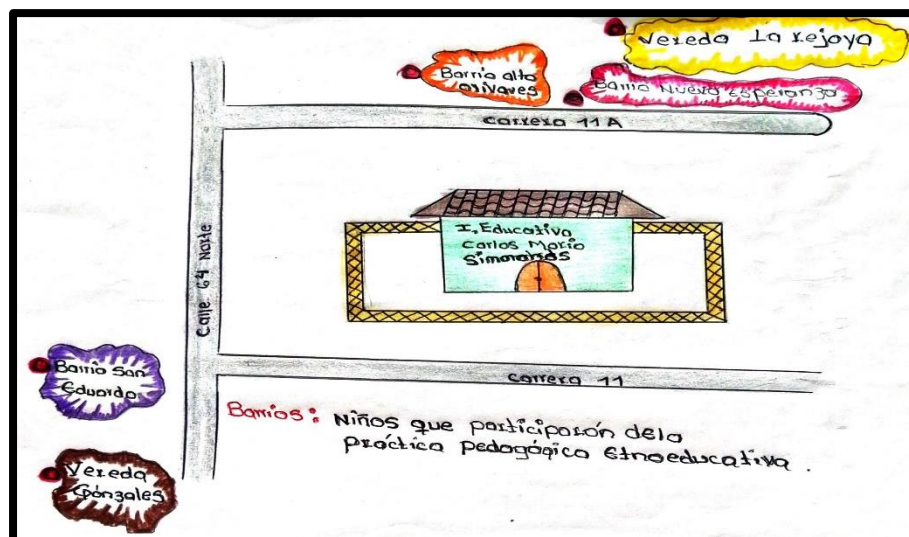 Vereda La Rejoya
Barrio alto
Barrio Nueva Esperanza
Carrera 11 A
I. Educativa
Carlos Mario
Simonaras
Calle 64 Norte
Barrio San
Eduardo
carrera 11
Barrios: Niños que participarón dela
práctica pedagógica Etnoeducativa.
Vereda
Gónzales